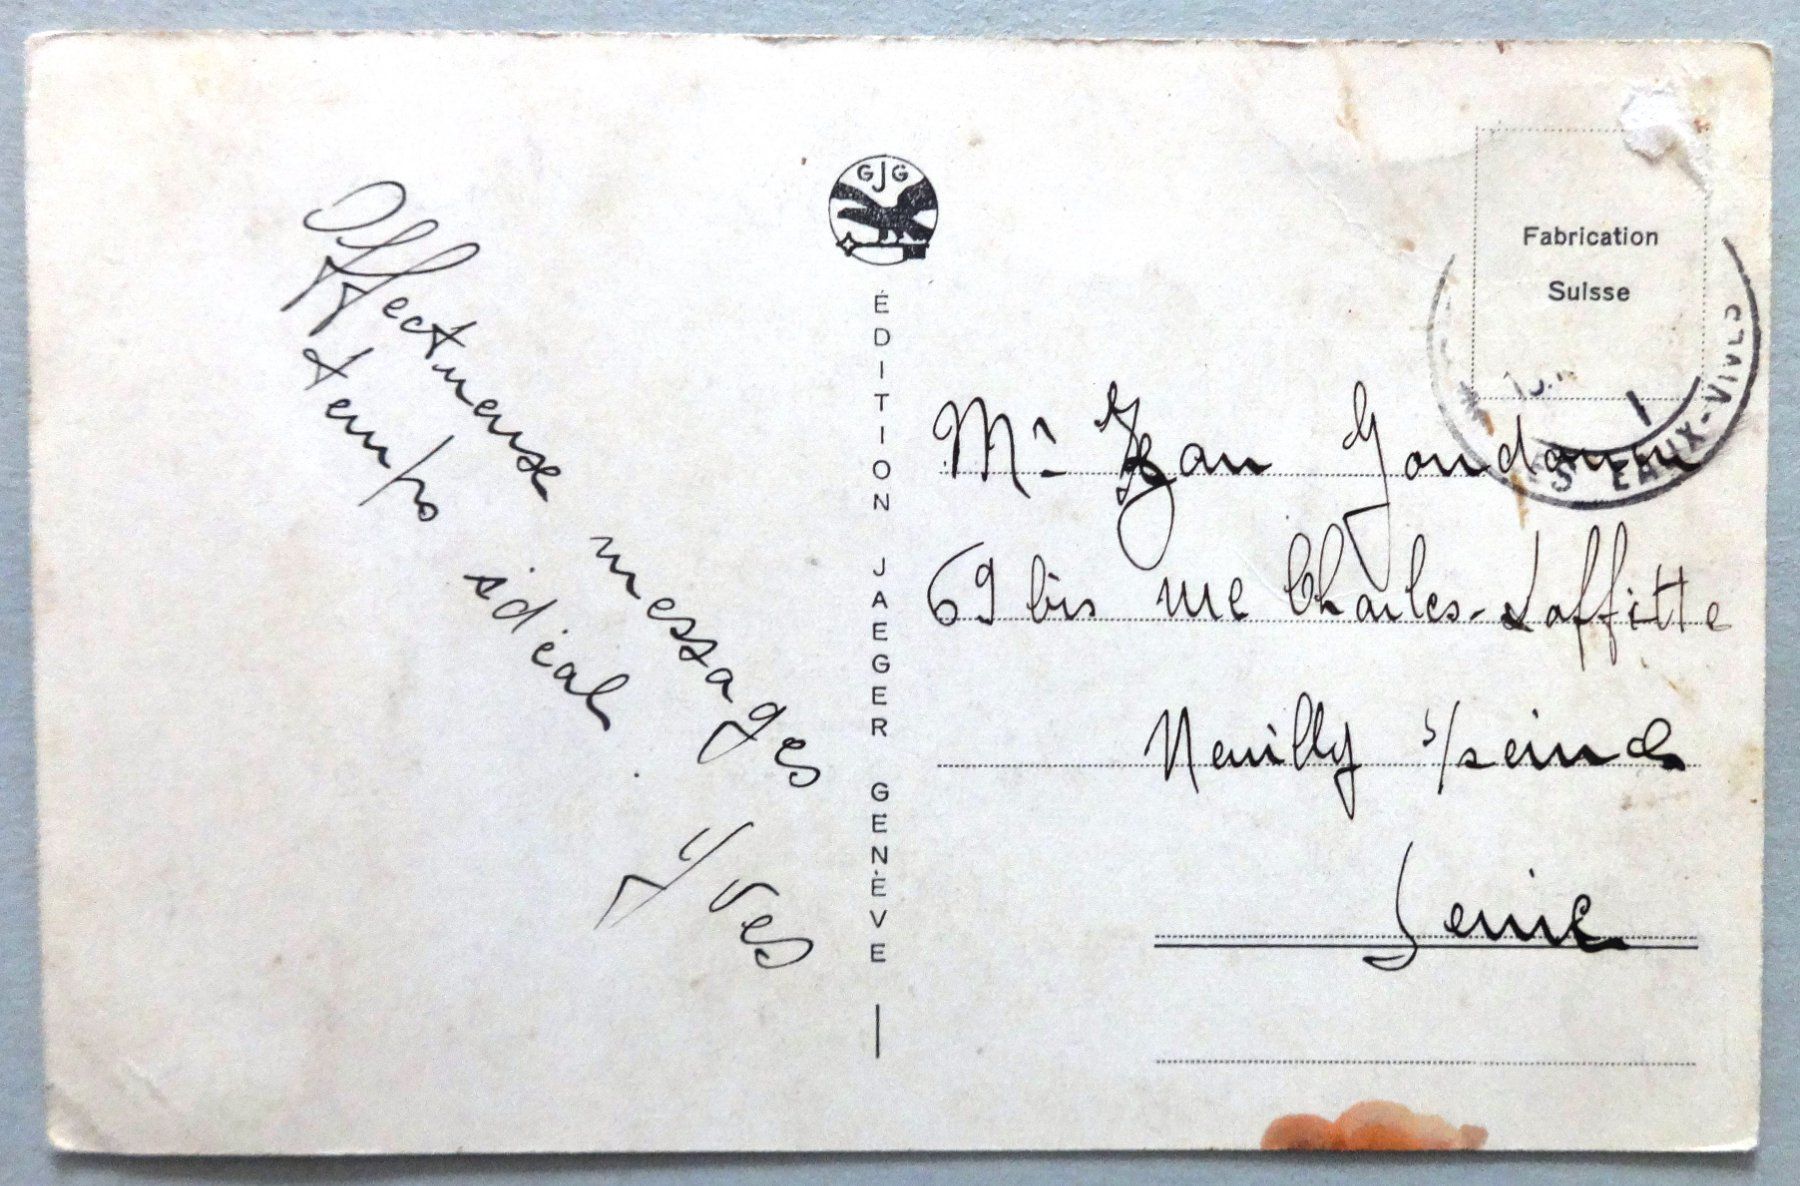 Affectueuse messages
temps idéal.
Yves
GJG
ÉDITION JAEGER GENÈVE
Fabrication
Suisse
EAUX-VIVES
Mr Jean
69 bis rue Charles-Laffitte
Neuilly s/seine
Seine